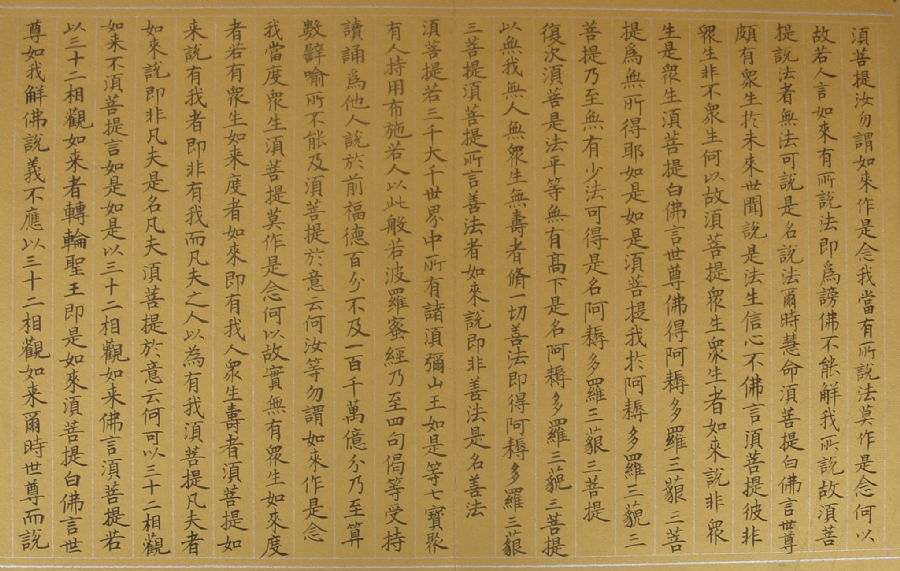 須菩提汝勿謂如来作是念我當有所説法莫作是念何以
故若人言如来有所説法即爲謗佛不能解我所説故須菩
提説法者無法可説是名説法爾時慧命須菩提白佛言世尊
頗有衆生扵未来世聞説是法生信心不佛言須菩提彼非
衆生非不衆生何以故須菩提衆生衆生者如来説非衆
生是衆生須菩提白佛言世尊佛得阿耨多羅三藐三菩
提爲無所得耶如是如是須菩提我扵阿耨多羅三藐三
菩提乃至無有少法可得是名阿耨多羅三藐三菩提
復次須菩是法平等無有髙下是名阿耨多羅三藐三菩提
以無我無人無衆生無壽者脩一切善法即得阿耨多羅三藐
三菩提須菩提所言善法者如来説即非善法是名善法
須菩提若三千大千世界中所有諸須彌山王如是等七寶聚
有人持用布施若人以此般若波羅蜜經乃至四句偈等受持
讀誦爲他人説於前福德百分不及一百千萬億分乃至算
數譬喻所不能及須菩提於意云何汝等勿謂如来作是念
我當度衆生須菩提莫作是念何以故實無有衆生如来度
者若有衆生如来度者如来即有我人衆生壽者須菩提如
来説有我者即非有我而凡夫之人以為有我須菩提凡夫者
如来説即非凡夫是名凡夫須菩提於意云何可以三十二相觀
如来不須菩提言如是如是以三十二相觀如来佛言須菩提若
以三十二相觀如来者轉輪聖王即是如来須菩提白佛言世
尊如我解佛説義不應以三十二相觀如来爾時世尊而説